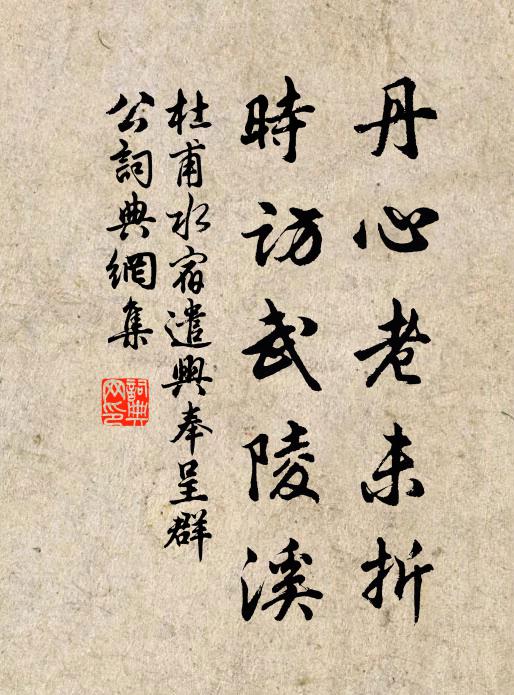 丹心老未折
時訪武陵溪
杜甫水宿遣興奉呈群
公詞典網集
詞典
网印